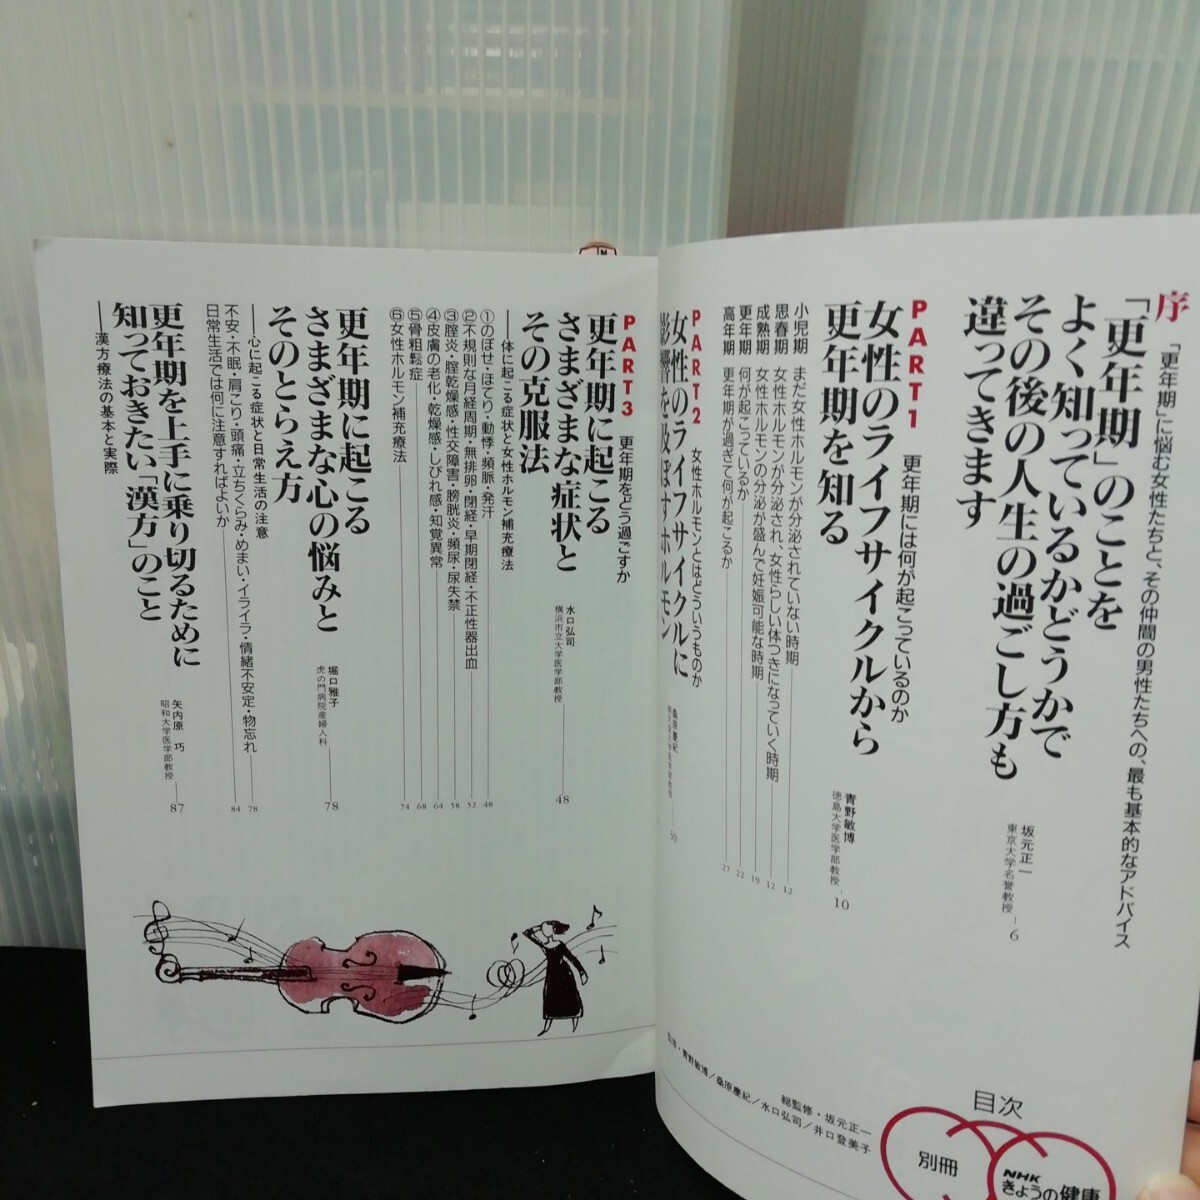 序
「更年期」に悩む女性たちと、その仲間の男性たちへの、最も基本的なアドバイス
「更年期」のことを
よく知っているかどうかで
その後の人生の過ごし方も
違ってきます
坂元正一
東京大学名誉教授
6
PART1
更年期には何が起こっているのか
女性のライフサイクルから
更年期を知る
青野敏博
徳島大学医学部教授
10
小児期 まだ女性ホルモンが分泌されていない時期 12
思春期 女性ホルモンが分泌され、女性らしい体つきになっていく時期 12
成熟期 女性ホルモンの分泌が盛んで妊娠可能な時期 19
更年期 何が起こっているか 22
高年期 更年期が過ぎて何が起こるか 27
PART2
女性ホルモンとはどういうものか
女性のライフサイクルに
影響を及ぼすホルモン
桑原慶紀
30
PART3
更年期をどう過ごすか
更年期に起こる
さまざまな症状と
その克服法
水口弘司
横浜市立大学医学部教授
48
―体に起こる症状と女性ホルモン補充療法
①のぼせ・ほてり・動悸・頻脈・発汗 48
②不規則な月経周期・無排卵・閉経・早期閉経・不正性器出血 52
③腟炎・腟乾燥感・性交障害・膀胱炎・頻尿・尿失禁 58
④皮膚の老化・乾燥感・しびれ感・知覚異常 64
⑤骨粗鬆症 68
⑥女性ホルモン補充療法 74
更年期に起こる
さまざまな心の悩みと
そのとらえ方
堀口雅子
虎の門病院産婦人科
78
―心に起こる症状と日常生活の注意
不安・不眠・肩こり・頭痛・立ちくらみ・めまい・イライラ・情緒不安定・物忘れ 78
日常生活では何に注意すればよいか 84
更年期を上手に乗り切るために
知っておきたい「漢方」のこと
矢内原 巧
昭和大学医学部教授
87
―漢方療法の基本と実際
総監修・坂元正一
青野敏博/桑原慶紀/水口弘司/井口登美子
目次
別冊
NHK
きょうの健康